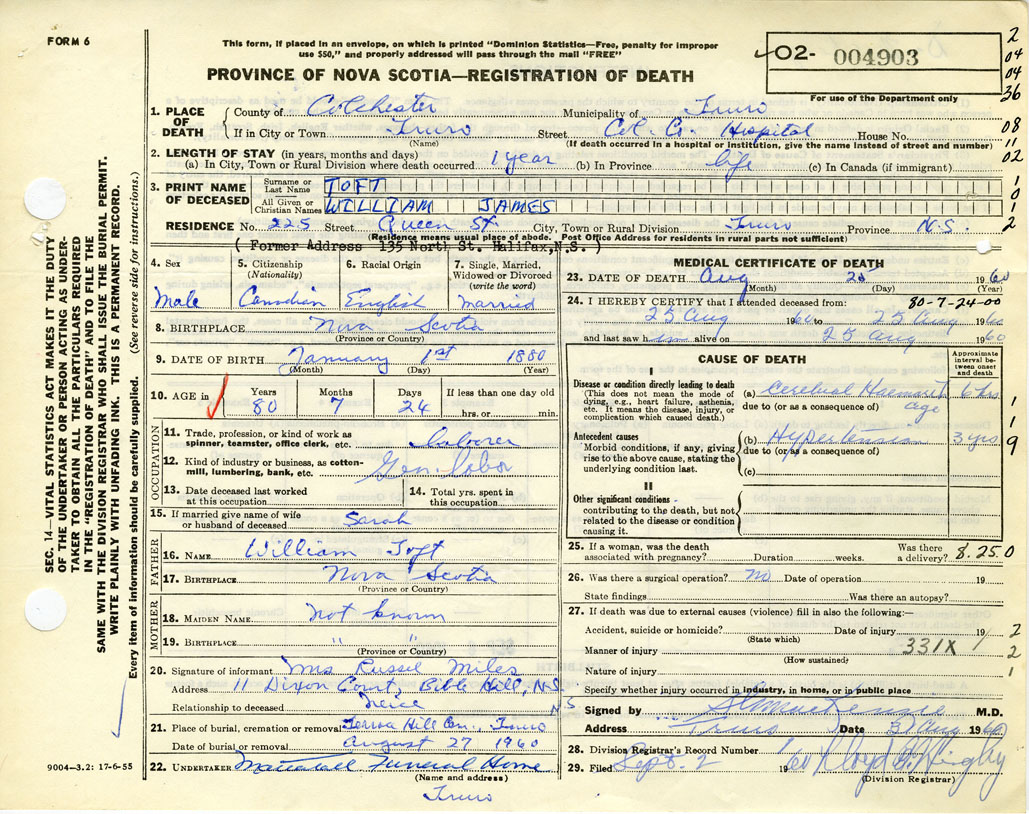 FORM 6
This form, if placed in an envelope, on which is printed "Dominion Statistics—Free, penalty for improper
use $50," and properly addressed will pass through the mail "FREE"
PROVINCE OF NOVA SCOTIA—REGISTRATION OF DEATH
02- 004903
For use of the Department only
2
04
04
36
08
11
02
1
0
1
2
1. PLACE OF DEATH
County of Colchester Municipality of Truro
If in City or Town Truro Street Col. Co. Hospital House No.
(Name) (If death occurred in a hospital or institution, give the name instead of street and number)
2. LENGTH OF STAY (in years, months and days)
(a) In City, Town or Rural Division where death occurred 1 year (b) In Province life (c) In Canada (if immigrant)
3. PRINT NAME OF DECEASED
Surname or Last Name TOFT
All Given or Christian Names WILLIAM JAMES
RESIDENCE No. 225 Street Queen St City, Town or Rural Division Truro Province N.S.
(Residence means usual place of abode. Post Office Address for residents in rural parts not sufficient)
( Former Address 135 North St. Halifax, N.S. )
4. Sex
Male
5. Citizenship
(Nationality)
Canadian
6. Racial Origin
English
7. Single, Married, Widowed or Divorced
(write the word)
married
8. BIRTHPLACE Nova Scotia
(Province or Country)
9. DATE OF BIRTH January 1st 1880
(Month) (Day) (Year)
10. AGE in
Years 80
Months 7
Days 24
If less than one day old
hrs. or min.
OCCUPATION
11. Trade, profession, or kind of work as
spinner, teamster, office clerk, etc. laborer
12. Kind of industry or business, as cotton-
mill, lumbering, bank, etc. Gen. labor
13. Date deceased last worked
at this occupation
14. Total yrs. spent in
this occupation
15. If married give name of wife
or husband of deceased Sarah
FATHER
16. NAME William Toft
17. BIRTHPLACE Nova Scotia
(Province or Country)
MOTHER
18. MAIDEN NAME not known
19. BIRTHPLACE " "
(Province or Country)
20. Signature of informant Mrs Russel Miles
Address 11 Dixon Court, Bible Hill, N.S.
Relationship to deceased neice
21. Place of burial, cremation or removal Terrace Hill Cem., Truro N S
Date of burial or removal August 27 1960
22. UNDERTAKER Funeral Home
(Name and address)
Truro
MEDICAL CERTIFICATE OF DEATH
23. DATE OF DEATH Aug 25 1960
(Month) (Day) (Year)
24. I HEREBY CERTIFY that I attended deceased from: 80-7-24-00
25 Aug 1960 to 25 Aug 1960
and last saw him alive on 25 Aug 1960
CAUSE OF DEATH
Approximate interval between onset and death
I
Disease or condition directly leading to death
(This does not mean the mode of
dying, e.g., heart failure, asthenia,
etc. It means the disease, injury, or
complication which caused death.)
(a) Cerebral Haemorrh age 6 hrs
due to (or as a consequence of)
Antecedent causes
Morbid conditions, if any, giving
rise to the above cause, stating the
underlying condition last.
(b) Hypertension 3 yrs
due to (or as a consequence of)
(c)
II
Other significant conditions
contributing to the death, but not
related to the disease or condition
causing it.
1
1
9
25. If a woman, was the death
associated with pregnancy? Duration weeks. Was there a delivery? 8.25.0
26. Was there a surgical operation? no Date of operation 19
State findings Was there an autopsy?
27. If death was due to external causes (violence) fill in also the following:—
Accident, suicide or homicide? Date of injury 19
(State which)
Manner of injury 331X
(How sustained)
Nature of injury
Specify whether injury occurred in industry, in home, or in public place
2
2
1
Signed by M.D.
Address Truro Date Aug 1960
28. Division Registrar's Record Number
29. Filed Sept. 2 1960
(Division Registrar)
SEC. 14—VITAL STATISTICS ACT MAKES IT THE DUTY
OF THE UNDERTAKER OR PERSON ACTING AS UNDER-
TAKER TO OBTAIN ALL THE PARTICULARS REQUIRED
IN THE "REGISTRATION OF DEATH" AND TO FILE THE
SAME WITH THE DIVISION REGISTRAR WHO SHALL ISSUE THE BURIAL PERMIT.
WRITE PLAINLY WITH UNFADING INK. THIS IS A PERMANENT RECORD.
Every item of information should be carefully supplied. (See reverse side for instructions.)
9004—3.2: 17-6-55